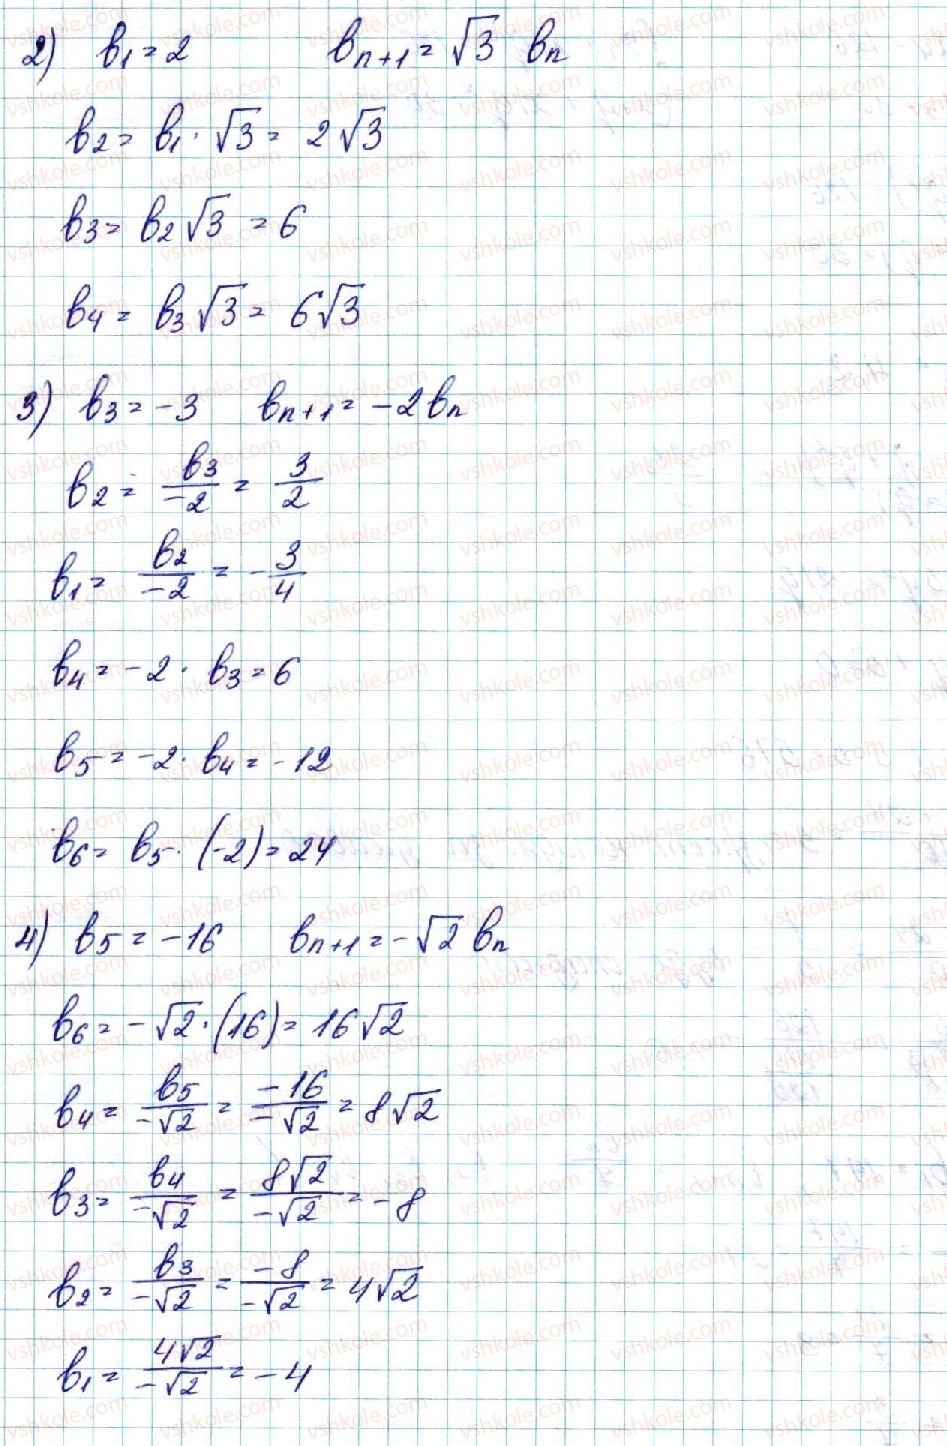 2) b₁ = 2   bₙ₊₁ = √3 bₙ
b₂ = b₁ · √3 = 2√3
b₃ = b₂ √3 = 6
b₄ = b₃ √3 = 6√3
3) b₃ = -3   bₙ₊₁ = -2bₙ
b₂ = b₃/-2 = 3/2
b₁ = b₂/-2 = -3/4
b₄ = -2 · b₃ = 6
b₅ = -2 · b₄ = -12
b₆ = b₅ · (-2) = 24
4) b₅ = -16   bₙ₊₁ = -√2 bₙ
b₆ = -√2 · (16) = 16√2
b₄ = b₅/-√2 = -16/-√2 = 8√2
b₃ = b₄/-√2 = 8√2/-√2 = -8
b₂ = b₃/-√2 = -8/-√2 = 4√2
b₁ = 4√2/-√2 = -4
vshkole.com